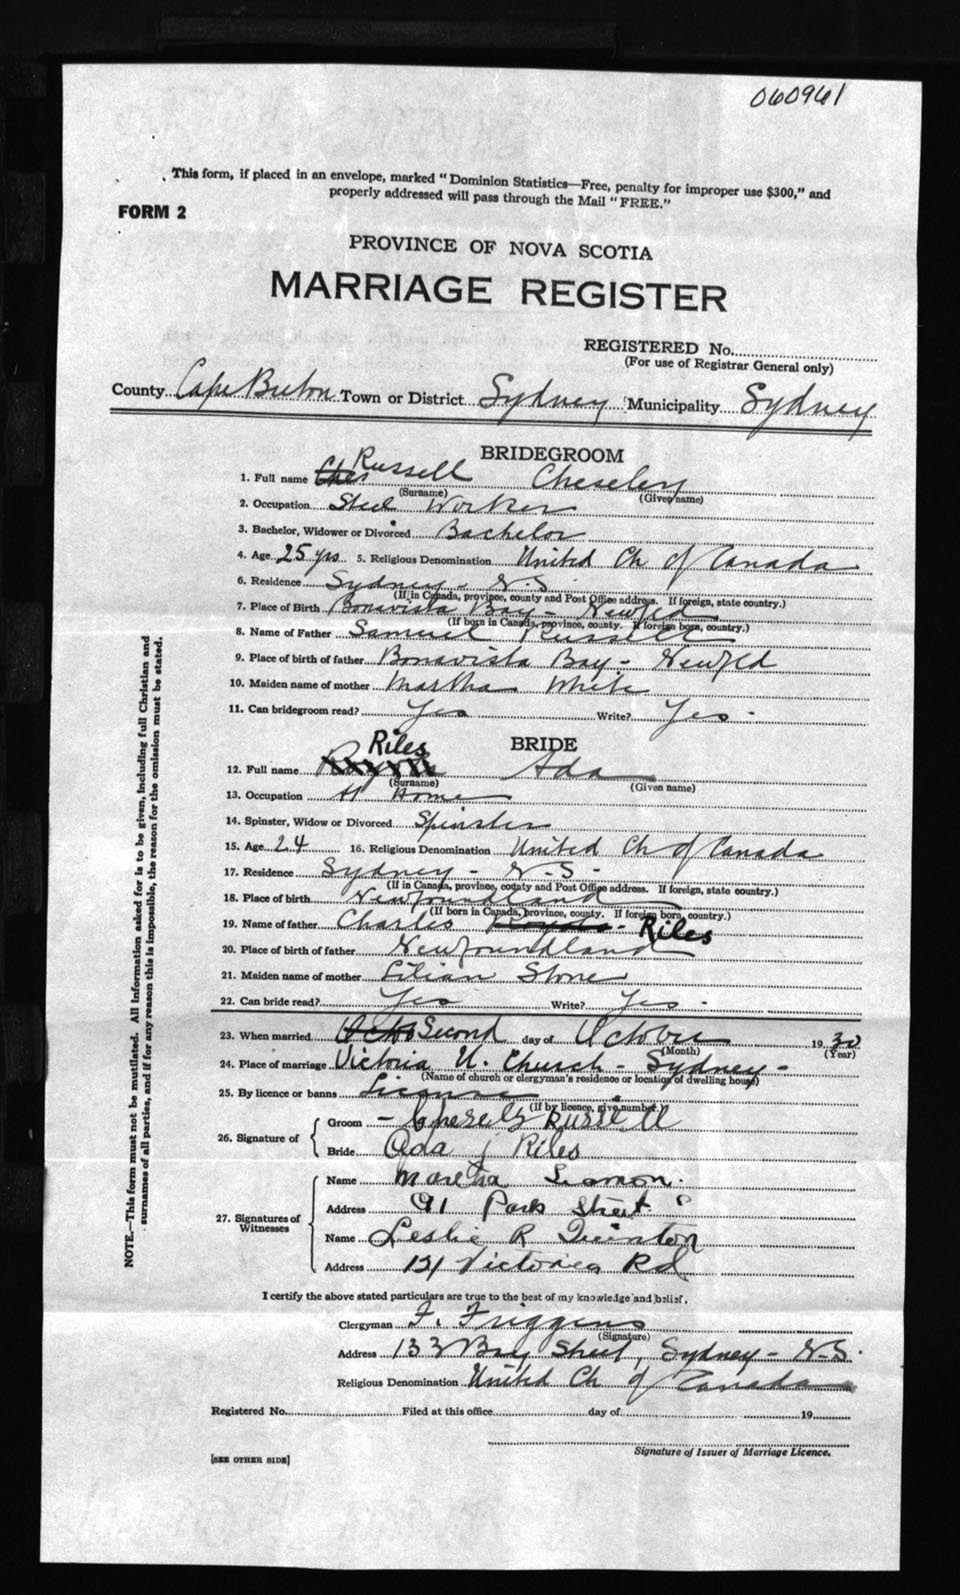 060961
This form, if placed in an envelope, marked "Dominion Statistics—Free, penalty for improper use $300," and
properly addressed will pass through the Mail "FREE."
FORM 2
PROVINCE OF NOVA SCOTIA
MARRIAGE REGISTER
REGISTERED No.
(For use of Registrar General only)
County Cape Breton Town or District Sydney Municipality Sydney
BRIDEGROOM
1. Full name Ches Russell Cheseley
(Surname) (Given name)
2. Occupation Steel Worker
3. Bachelor, Widower or Divorced Bachelor
4. Age 25 yrs 5. Religious Denomination United Ch of Canada
6. Residence Sydney - N.S.
(If in Canada, province, county and Post Office address. If foreign, state country.)
7. Place of Birth Bonavista Bay - Newfld
(If born in Canada, province, county. If foreign born, country.)
8. Name of Father Samuel Russell
9. Place of birth of father Bonavista Bay - Newfld
10. Maiden name of mother Martha White
11. Can bridegroom read? Yes Write? Yes -
BRIDE
Riles
12. Full name Ada
(Surname) (Given name)
13. Occupation At Home
14. Spinster, Widow or Divorced Spinster
15. Age 24 16. Religious Denomination United Ch of Canada
17. Residence Sydney - N.S -
(If in Canada, province, county and Post Office address. If foreign, state country.)
18. Place of birth Newfoundland
(If born in Canada, province, county. If foreign born, country.)
19. Name of father Charles Riles
20. Place of birth of father Newfoundland
21. Maiden name of mother Lilian Stone
22. Can bride read? Yes Write? Yes -
23. When married Second day of October 1930
(Month) (Year)
24. Place of marriage Victoria U. Church - Sydney -
(Name of church or clergyman's residence or location of dwelling house)
25. By licence or banns License
(If by licence, give number.)
26. Signature of
Groom - Chesely Russell
Bride Ada J Riles
27. Signatures of Witnesses
Name Martha
Address 91 Park Street
Name Leslie R Quinton
Address 121 Victoria Rd
I certify the above stated particulars are true to the best of my knowledge and belief.
Clergyman F. Friggens
(Signature)
Address 133 Bay Street, Sydney - N.S.
Religious Denomination United Ch of Canada
Registered No. Filed at this office day of 19
Signature of Issuer of Marriage Licence.
[SEE OTHER SIDE]
NOTE.—This form must not be mutilated. All information asked for is to be given, including full Christian and
surnames of all parties, and if for any reason this is impossible, the reason for the omission must be stated.